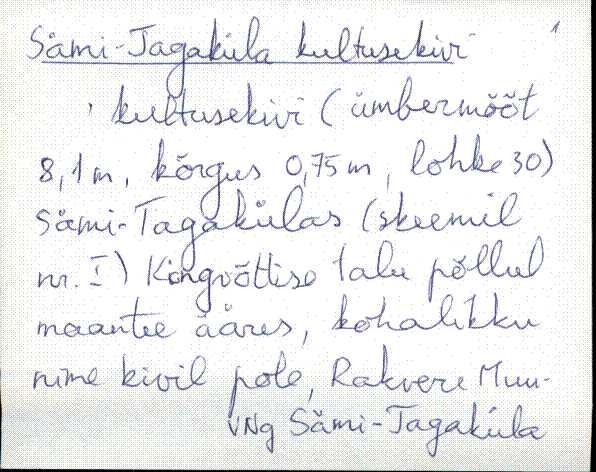 1
Sämi-Tagaküla kultusekivi
kultusekivi (ümbermõõt
8,1m, kõrgus 0,75m, lohke 30)
Sämi-Tagakülas (skeemil
nr. I) Kingvõttise talu põllul
maantee ääres, kohalikku
nime kivil pole, Rakvere Muu-
VNg Sämi-Tagaküla